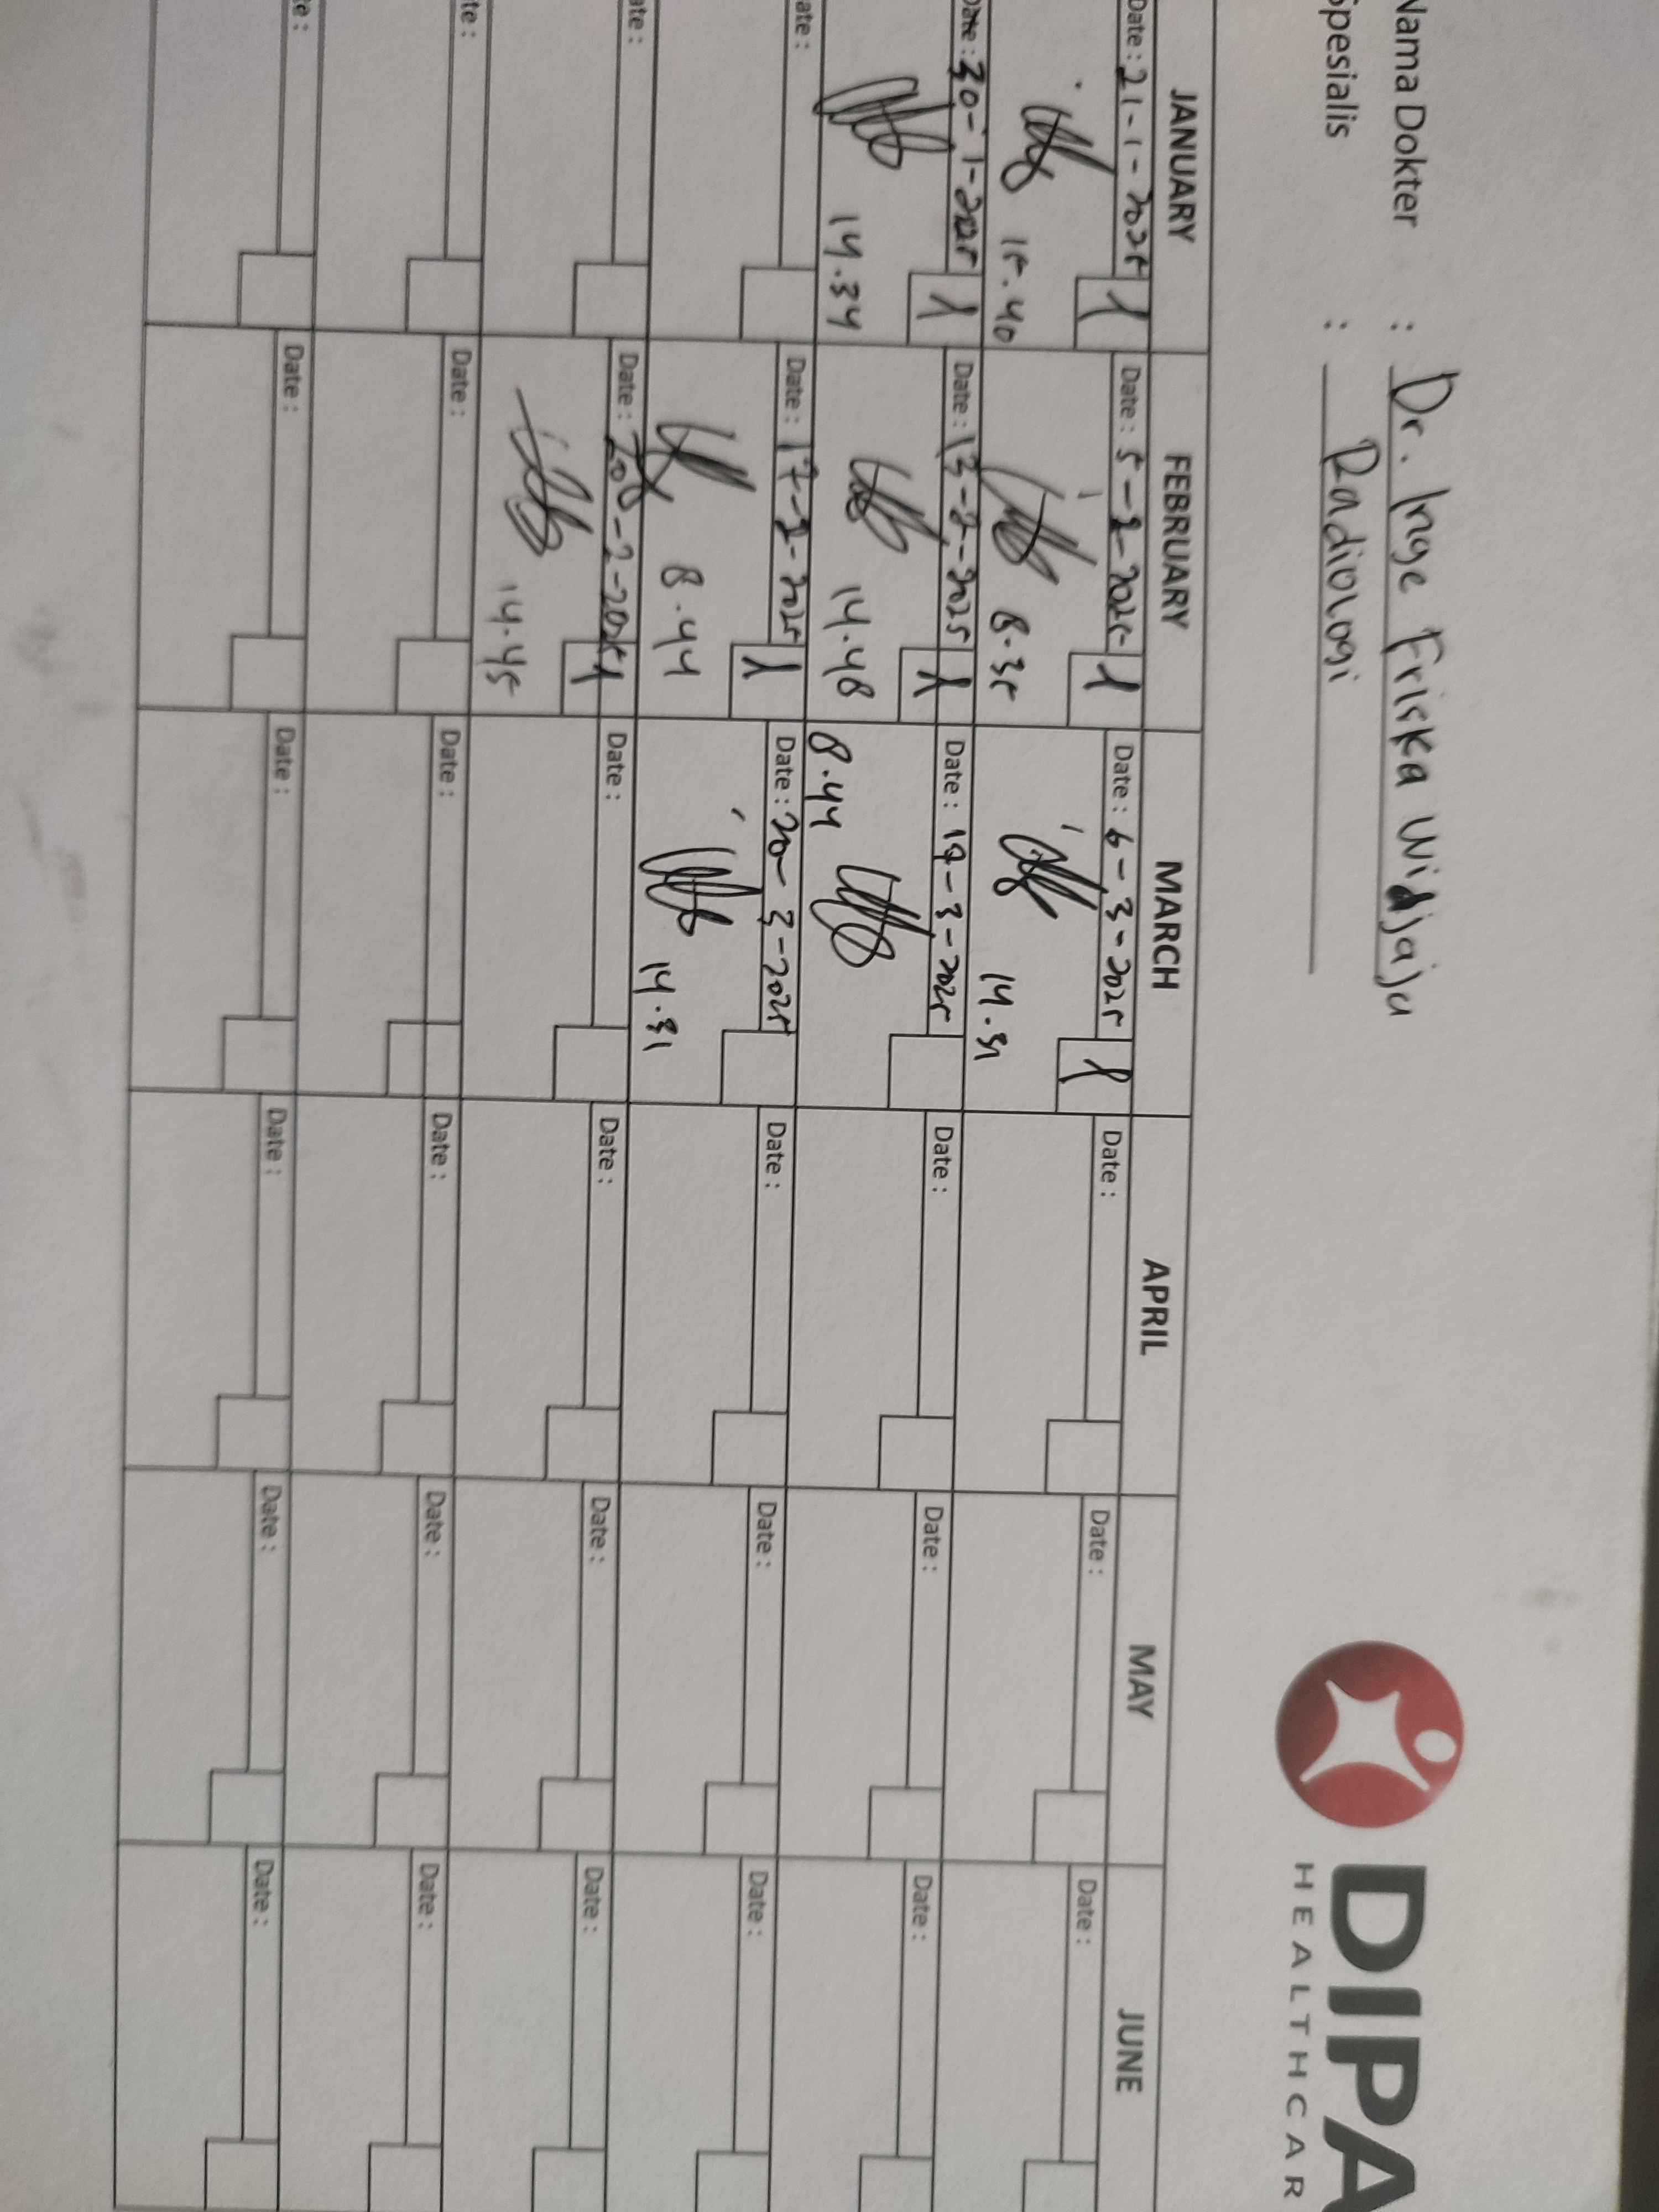 Nama Dokter : Dr. Inge Friska Widjaja
Spesialis : Radiologi
DIPA
HEALTHCAR
JANUARY FEBRUARY MARCH APRIL MAY JUNE
Date : 21-1-2025 1 Date : 5-2-2025 1 Date : 6-3-2025 1 Date : Date : Date :
15.40 8.35 14.31
Date : 30-1-2025 1 Date : 13-2-2025 1 Date : 19-3-2025 Date : Date : Date :
14.34 14.48 8.44
ate : Date : 17-2-2025 1 Date : 20-3-2025 Date : Date : Date :
8.44 14.31
ate : Date : 20-2-2025 1 Date : Date : Date : Date :
14.45
te : Date : Date : Date : Date : Date :
te : Date : Date : Date : Date : Date :